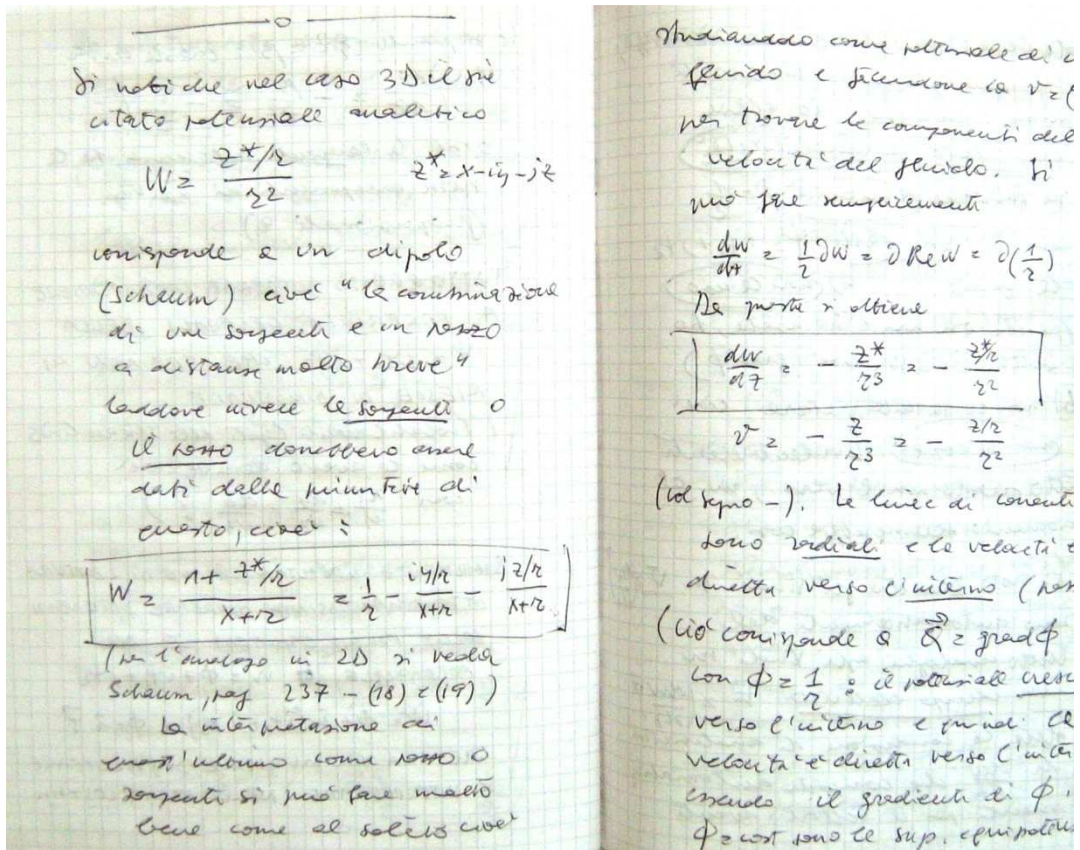 Si noti che nel caso 3D il già
citato potenziale analitico
W = (z*/r) / r²    z* = x - iy - jz
corrisponde a un dipolo
(Schaum) cioè "la combinazione
di una sorgente e un pozzo
a distanza molto breve"
laddove invece le sorgenti o
il pozzo dovrebbero essere
dati dalla primitiva di
questo, cioè :
W = (1 + z*/r) / (x+r) = 1/r - (iy/r)/(x+r) - (jz/r)/(x+r)
(per l'analogo in 2D si veda
Schaum, pag 237 - (18) e (19))
La interpretazione di
quest'ultimo come pozzo o
sorgente si può fare molto
bene come al solito cioè
studiandolo come potenziale di
fluido e facendone la v = (
per trovare le componenti del
velocità del fluido. Si
può fare semplicemente
dw/dz = 1/2 ∂w = ∂ Re w = ∂(1/r)
Da questa si ottiene
dw/dz = - z*/r³ = - (z*/r)/r²
v = - z/r³ = - (z/r)/r²
(col segno -). Le linee di corrente
sono radiali e la velocità è
diretta verso l'interno
(ciò corrisponde a Q = grad φ
con φ = 1/r : il potenziale cresc
verso l'interno e quindi la
velocità è diretta verso l'inter
essendo il gradiente di φ.
φ = cost sono le sup. equipoten